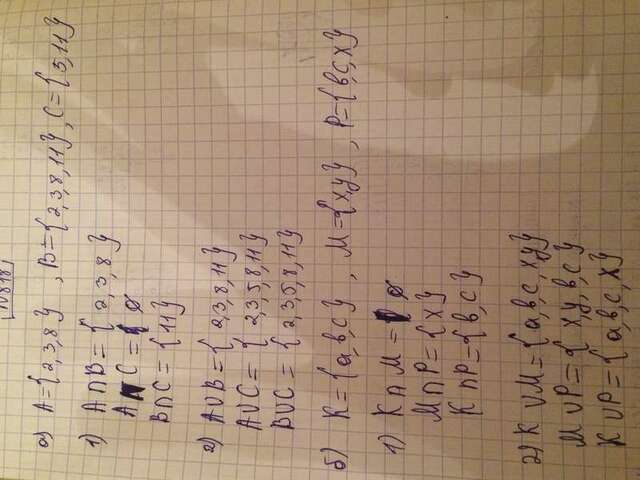 N 818
а) A={2,3,8} , B={2,3,8,11} , C={5,11}
1) A∩B={2,3,8}
A∩C=∅
B∩C={11}
2) A∪B={2,3,8,11}
A∪C={2,3,5,8,11}
B∪C={2,3,5,8,11}
б) K={a,b,c} , M={x,y} , P={b,c,x}
1) K∩M=∅
M∩P={x}
K∩P={b,c}
2) K∪M={a,b,c,x,y}
M∪P={x,y,b,c}
K∪P={a,b,c,x}